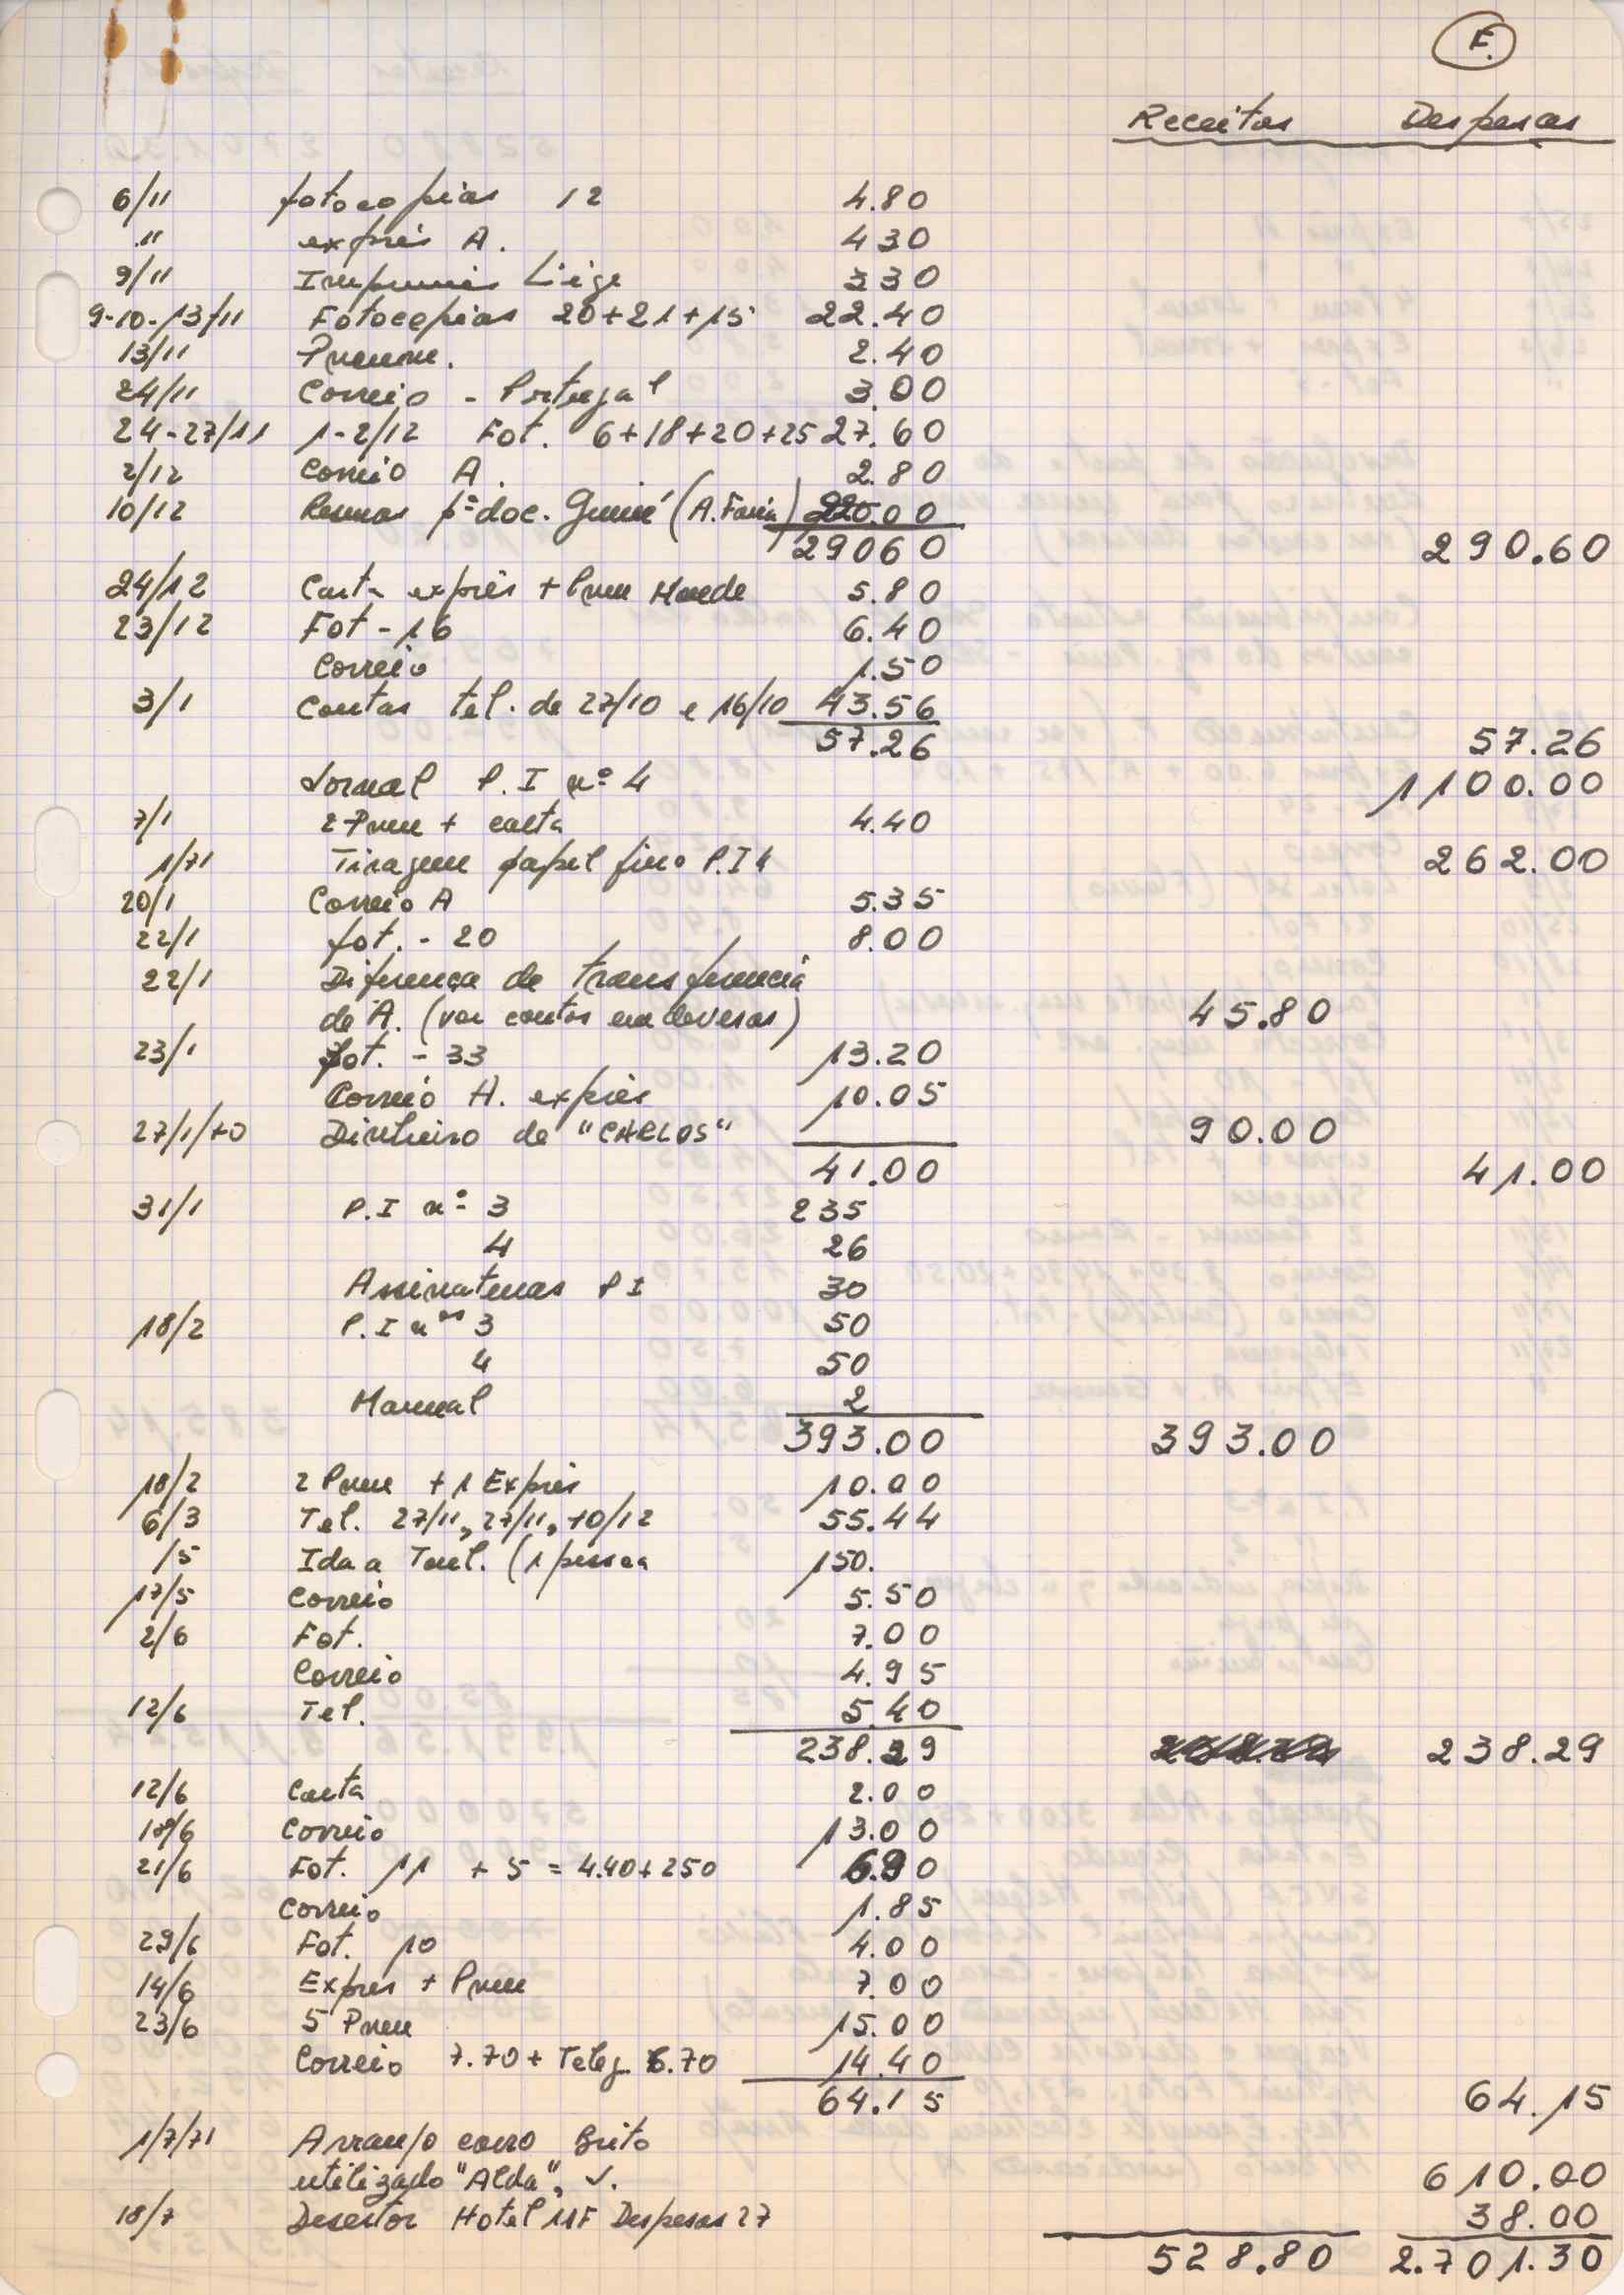 F.
Receitas Despesas
6/11 fotocopias 12 4.80
" exprés A. 430
9/11 Imprimés Liège 330
9-10-13/11 Fotocopias 20+21+15 22.40
13/11 Pneum. 2.40
24/11 Correio - Portugal 3.00
24-27/11 1-2/12 Fot. 6+18+20+25 27.60
2/12 Correio A. 2.80
10/12 Resmas pª doc. Guiné (A. Faria) 220.00
29060 290.60
24/12 Carta exprés + Pneu 5.80
23/12 Fot - 16 6.40
Correio 1.50
3/1 Contas tel. de 27/10 e 16/10 43.56
57.26 57.26
Jornal P.I nº 4 1100.00
7/1 2 Pneu + carta 4.40
1/71 Tiragem papel fino P.I 4 262.00
20/1 Correio A 5.35
22/1 fot. - 20 8.00
22/1 Diferença de transferencia
de A. (ver contas em devesas) 45.80
23/1 fot. - 33 13.20
Correio A. exprés 10.05
27/1/70 Dinheiro de "CARLOS" 90.00
41.00 41.00
31/1 P.I nº 3 235
4 26
Assinaturas PI 30
18/2 P.I nºs 3 50
4 50
Manual 2
393.00 393.00
18/2 2 Pneu + 1 Exprés 10.00
6/3 Tel. 27/11, 27/11, 10/12 55.44
/5 Ida a (1 pessoa 150.
17/5 Correio 5.50
2/6 Fot. 7.00
Correio 4.95
12/6 Tel. 5.40
238.29 238.29
12/6 Carta 2.00
18/6 Correio 13.00
21/6 Fot. 11 + 5 = 4.40+250 6.90
Correio 1.85
29/6 Fot. 10 4.00
14/6 Exprés + Pneu 7.00
23/6 5 Pneu 15.00
Correio 7.70 + Teleg. 6.70 14.40
64.15 64.15
1/7/71 Arranjo carro Brito
utilizado "Alda", V. 610.00
18/7 Desertor Hotel 11F Despesas 27 38.00
528.80 2.701.30